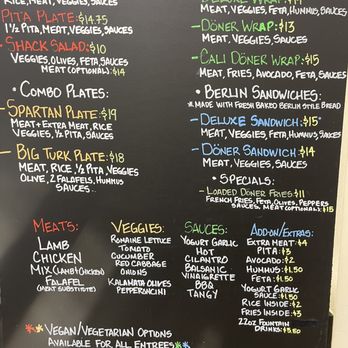 RICE, MEAT, VEGGIES, SAUCES
PITA PLATE: $14.75
1½ PITA, MEAT, VEGGIES, SAUCES
- SHACK SALAD: $10
VEGGIES, OLIVES, FETA, SAUCES
MEAT (OPTIONAL): $14
• COMBO PLATES:
- SPARTAN PLATE: $19
MEAT + EXTRA MEAT, RICE
VEGGIES, ½ PITA, SAUCES
- BIG TURK PLATE: $18
MEAT, RICE, ½ PITA, VEGGIES
OLIVE, 2 FALAFELS, HUMMUS
SAUCES
MEAT, VEGGIES, FETA, HUMMUS, SAUCES
- DÖNER WRAP: $13
MEAT, VEGGIES, SAUCES
- CALI DÖNER WRAP: $15
MEAT, FRIES, AVOCADO, FETA, SAUCES
• BERLIN SANDWICHES:
* MADE WITH FRESH BAKED BERLIN STYLE BREAD
- DELUXE SANDWICH: $15
MEAT, VEGGIES, FETA, HUMMUS, SAUCES
- DÖNER SANDWICH: $14
MEAT, VEGGIES, SAUCES
• SPECIALS:
- LOADED DÖNER FRIES: $11
FRENCH FRIES, FETA, OLIVES, PEPPERS
SAUCES, MEAT (OPTIONAL): $15
MEATS:
LAMB
CHICKEN
MIX (LAMB + CHICKEN)
FALAFEL
(MEAT SUBSTITUTE)
VEGGIES:
ROMAINE LETTUCE
TOMATO
CUCUMBER
RED CABBAGE
ONIONS
KALAMATA OLIVES
PEPPERONCINI
SAUCES:
YOGURT GARLIC
HOT
CILANTRO
BALSAMIC
VINAIGRETTE
BBQ
TANGY
ADD-ON/EXTRAS:
EXTRA MEAT: $4
PITA: $3
AVOCADO: $2
HUMMUS: $1.50
FETA: $1.50
YOGURT GARLIC
SAUCE: $1.50
RICE INSIDE: $2
FRIES INSIDE: $3
22OZ FOUNTAIN
DRINKS: $3.50
** VEGAN/VEGETARIAN OPTIONS
AVAILABLE FOR ALL ENTREES **